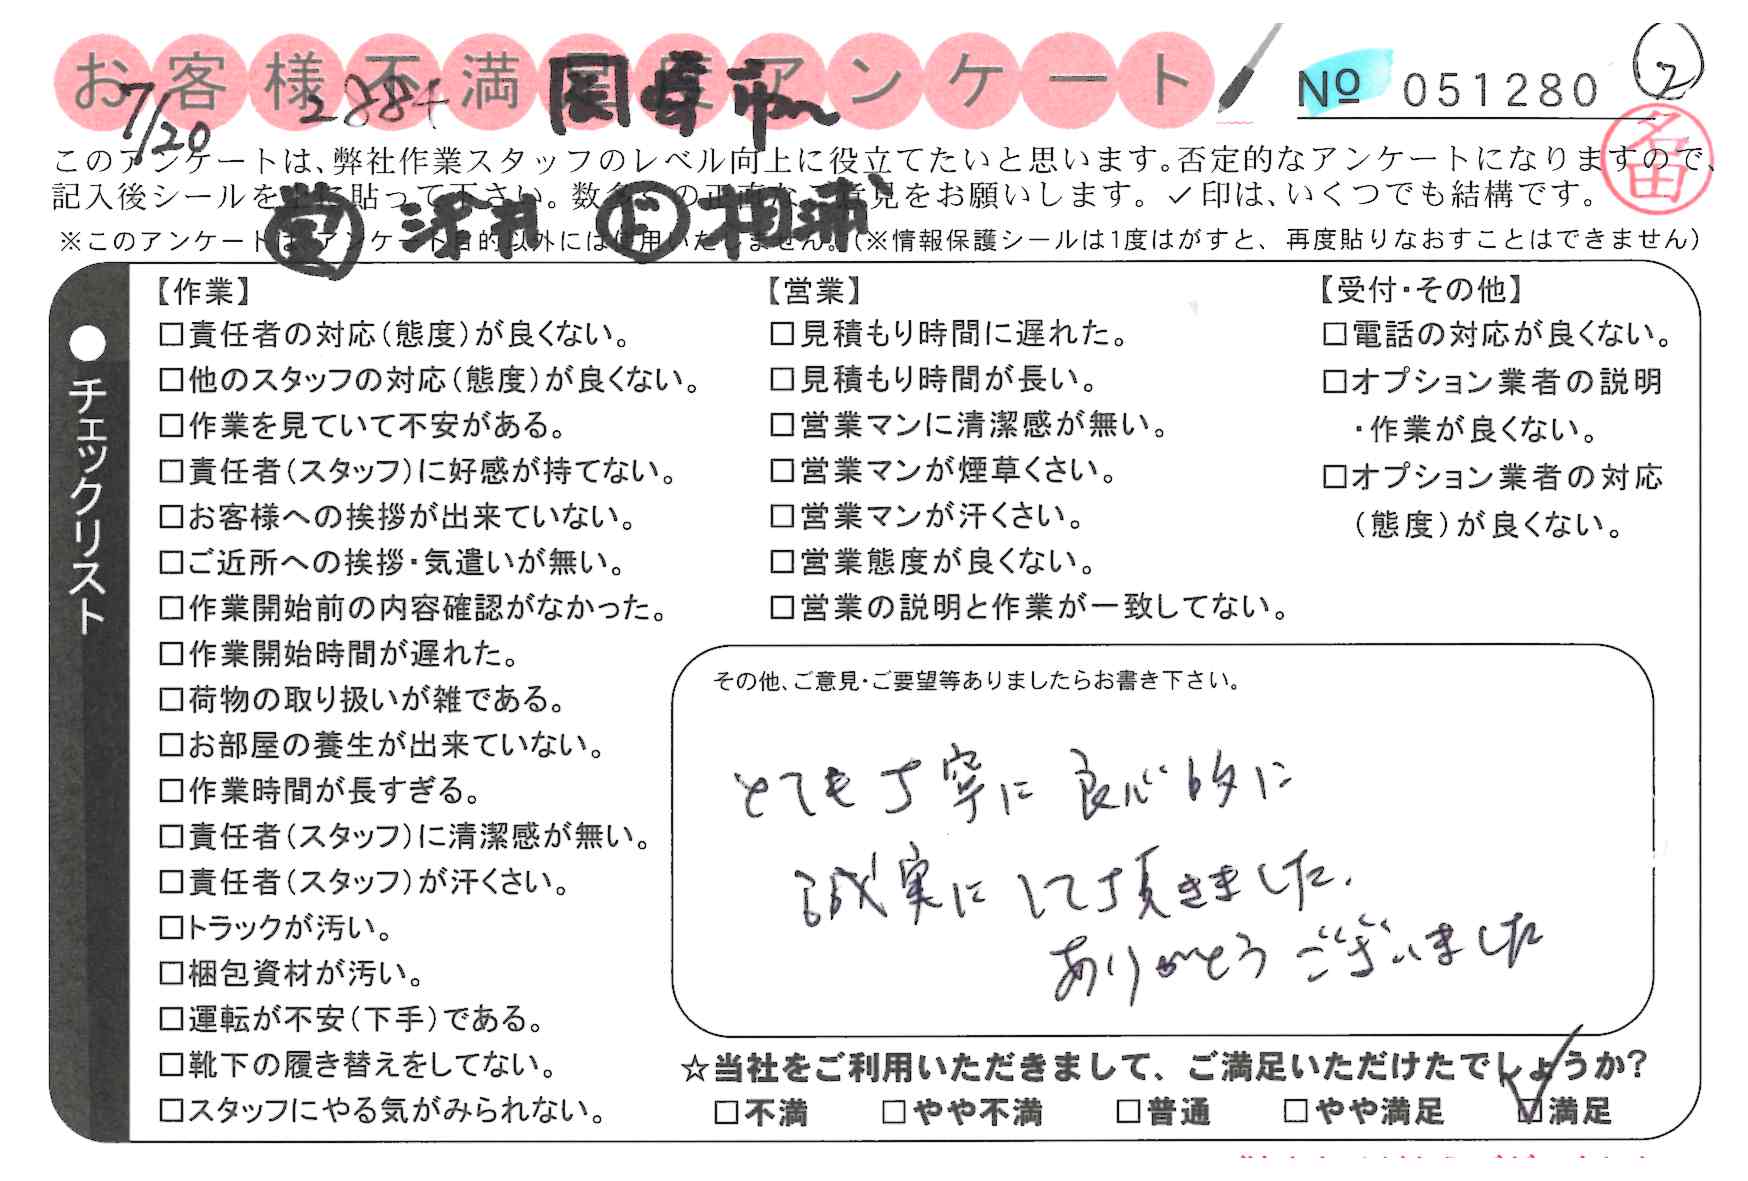 お客様不満足度アンケート
№ 051280
2
7/20 2884
名田
このアンケートは、弊社作業スタッフのレベル向上に役立てたいと思います。否定的なアンケートになりますので、
記入後シールを 貼って下さい。数多くの正直なご意見をお願いします。✓印は、いくつでも結構です。
※このアンケートは、アンケート目的以外には使用いたしません。(※情報保護シールは1度はがすと、再度貼りなおすことはできません)
●チェックリスト
【作業】
□責任者の対応(態度)が良くない。
□他のスタッフの対応(態度)が良くない。
□作業を見ていて不安がある。
□責任者(スタッフ)に好感が持てない。
□お客様への挨拶が出来ていない。
□ご近所への挨拶・気遣いが無い。
□作業開始前の内容確認がなかった。
□作業開始時間が遅れた。
□荷物の取り扱いが雑である。
□お部屋の養生が出来ていない。
□作業時間が長すぎる。
□責任者(スタッフ)に清潔感が無い。
□責任者(スタッフ)が汗くさい。
□トラックが汚い。
□梱包資材が汚い。
□運転が不安(下手)である。
□靴下の履き替えをしてない。
□スタッフにやる気がみられない。
【営業】
□見積もり時間に遅れた。
□見積もり時間が長い。
□営業マンに清潔感が無い。
□営業マンが煙草くさい。
□営業マンが汗くさい。
□営業態度が良くない。
□営業の説明と作業が一致してない。
【受付・その他】
□電話の対応が良くない。
□オプション業者の説明
・作業が良くない。
□オプション業者の対応
(態度)が良くない。
その他、ご意見・ご要望等ありましたらお書き下さい。
とても丁寧に良心的に
誠実にして頂きました.
ありがとうございました
☆当社をご利用いただきまして、ご満足いただけたでしょうか?
□不満 □やや不満 □普通 □やや満足 ☑満足